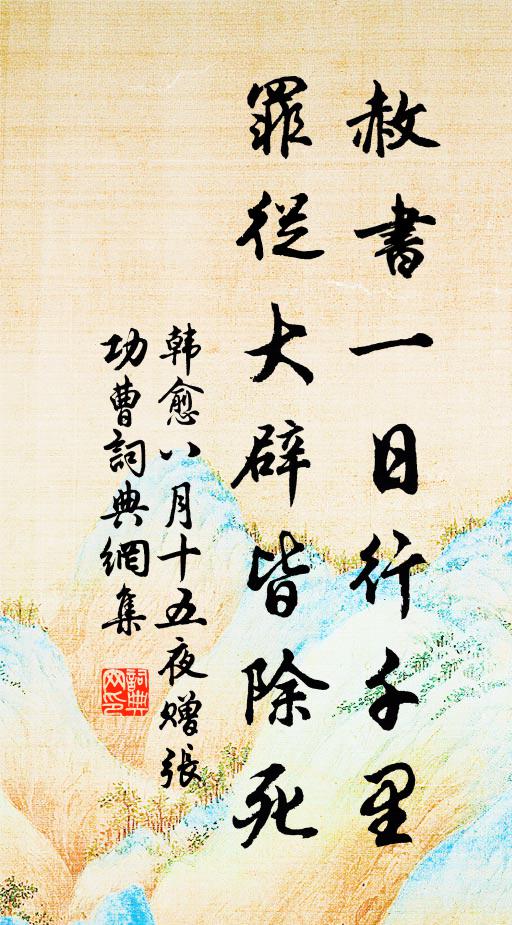 赦書一日行千里
罪從大辟皆除死
韩愈八月十五夜赠張
功曹詞典網集
詞典网印